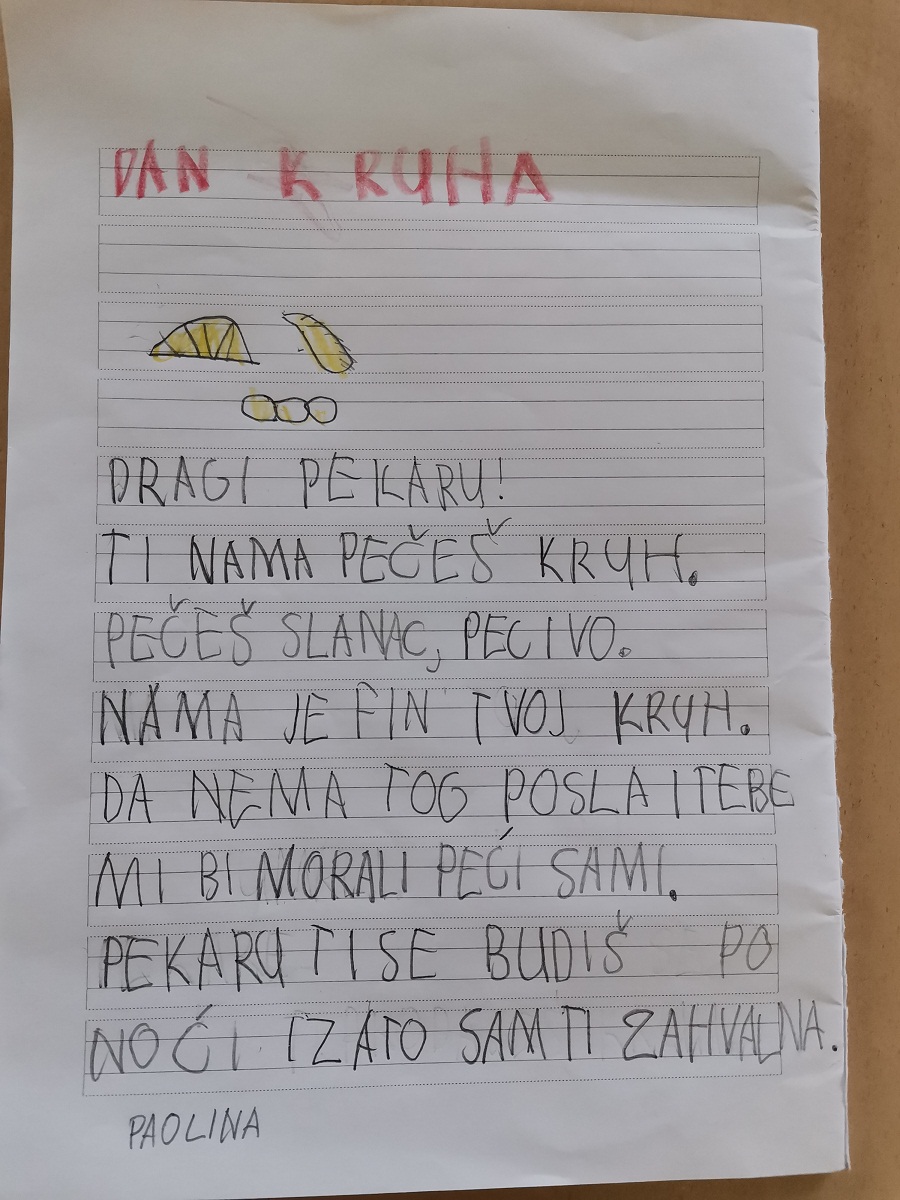 DAN KRUHA
DRAGI PEKARU!
TI NAMA PEČEŠ KRUH.
PEČEŠ SLANAC, PECIVO.
NAMA JE FIN TVOJ KRUH.
DA NEMA TOG POSLA I TEBE
MI BI MORALI PEĆI SAMI.
PEKARU TI SE BUDIŠ PO
NOĆI I ZATO SAM TI ZAHVALNA.
PAOLINA